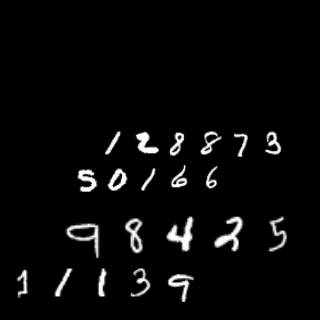 128873
50166
98425
11139